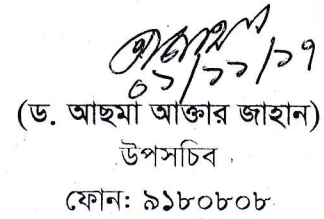 ০১/১১/১৭
(ড. আছমা আক্তার জাহান)
উপসচিব
ফোন: ৯১৮০৮০৮